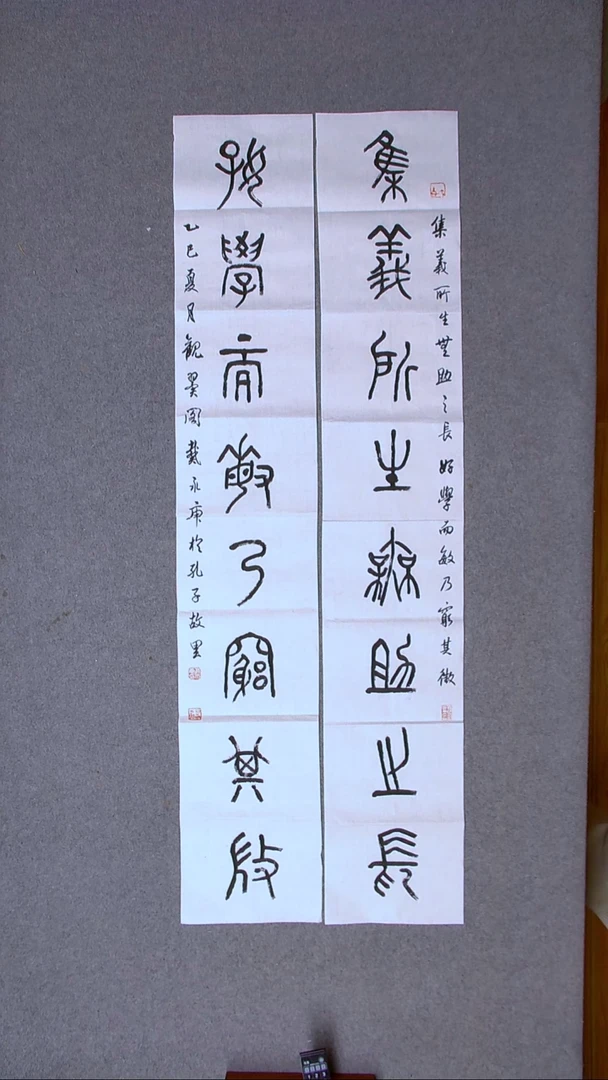 集義所生無助之長
集義所生無助之長 好學而敏乃窮其微
好學而敏乃窮其微
乙巳夏月觀翼閣戴永庫於孔子故里